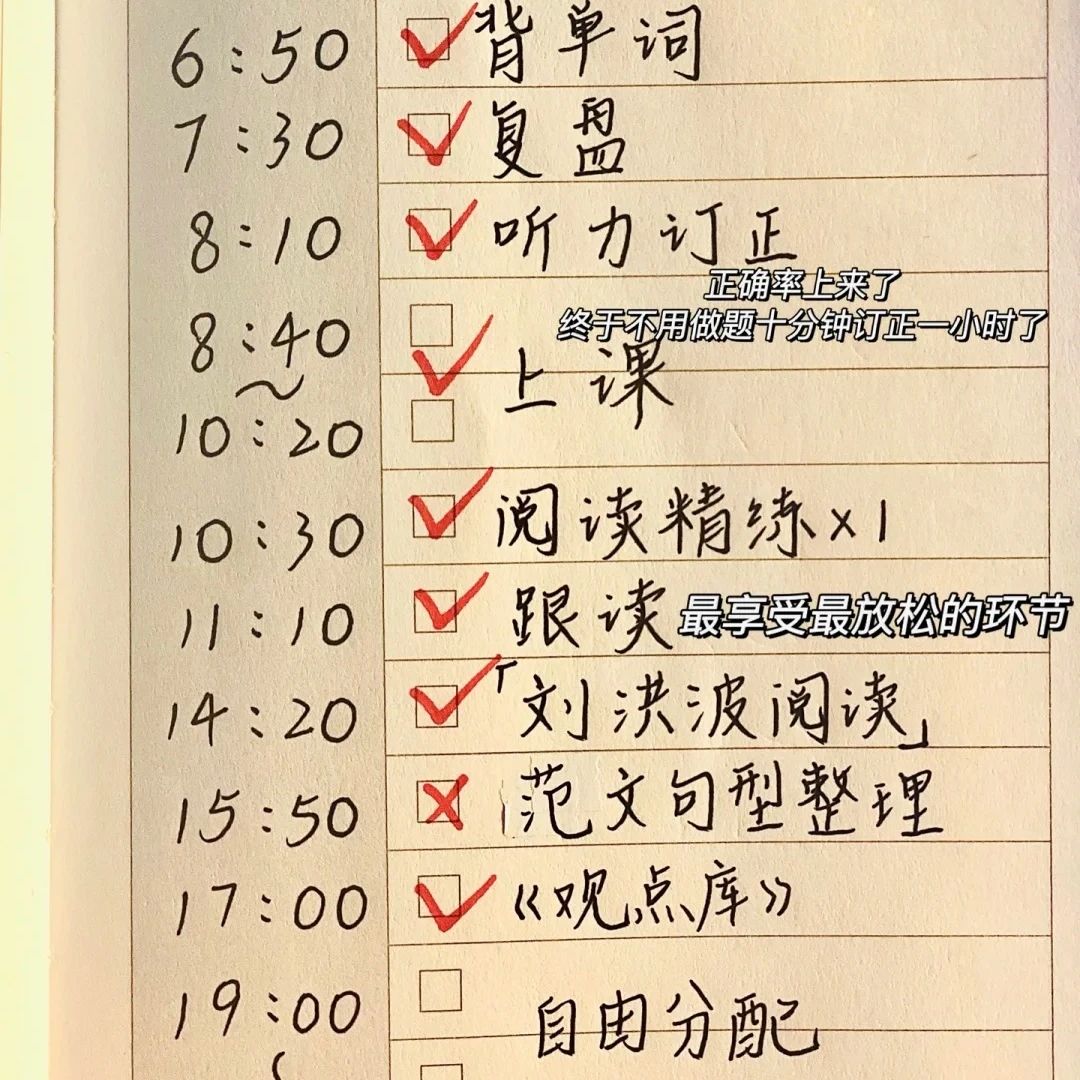 6:50 背单词
7:30 复盘
8:10 听力订正
正确率上来了
终于不用做题十分钟订正一小时了
8:40
~
上课
10:20
10:30 阅读精练x1
11:10 跟读 最享受最放松的环节
14:20 「刘洪波阅读」
15:50 范文句型整理
17:00 《观点库》
19:00 自由分配